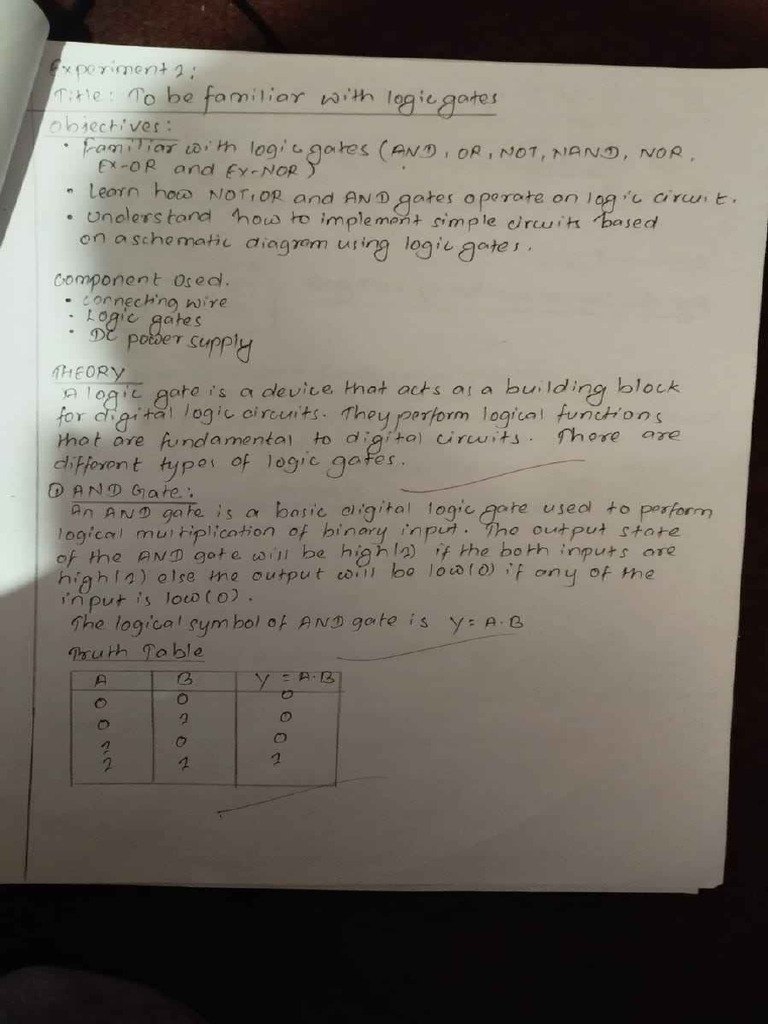 Experiment 1:
Title: To be familiar with logic gates
Objectives:
• Familiar with logic gates (AND, OR, NOT, NAND, NOR,
EX-OR and EX-NOR)
• Learn how NOT, OR and AND gates operate on logic circuit.
• Understand how to implement simple circuits based
on a schematic diagram using logic gates.
Component Used.
• Connecting wire
• Logic gates
• DC power supply
THEORY
A logic gate is a device that acts as a building block
for digital logic circuits. They perform logical functions
that are fundamental to digital circuits. There are
different types of logic gates.
① AND Gate:
An AND gate is a basic digital logic gate used to perform
logical multiplication of binary input. The output state
of the AND gate will be high(1) if the both inputs are
high(1) else the output will be low(0) if any of the
input is low(0).
The logical symbol of AND gate is Y = A.B
Truth Table
A B Y = A.B
0 0 0
0 1 0
1 0 0
1 1 1